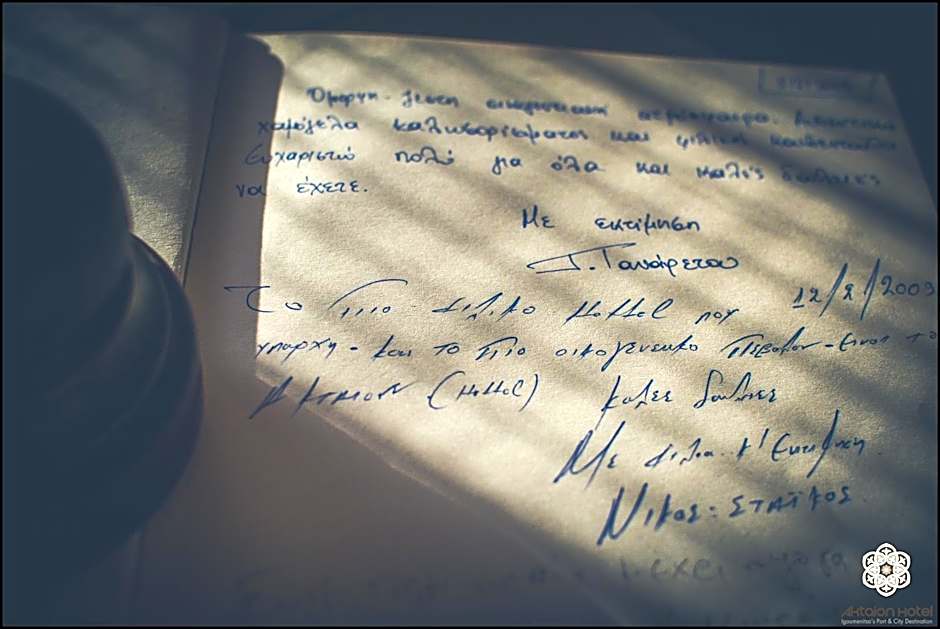 Όμορφη - ζεστή οικογενειακή ατμόσφαιρα.
χαμόγελα καλωσορίσματος και φιλική
Ευχαριστώ πολύ για όλα και καλές δουλειές
να έχετε.
Με εκτίμηση
12/2/2009
Το Πιο Φιλικο Hottel που
υπαρχη - και το Πιο οικογενεκο - Ειναι το
(Hottel) Καλες δουλιες
Με φιλια κ' Εκτιμηση
ΝΙΚΟΣ : ΣΤΑΪΚΟΣ
έχει
Aktaion Hotel
Igoumenitsa's Port & City Destination